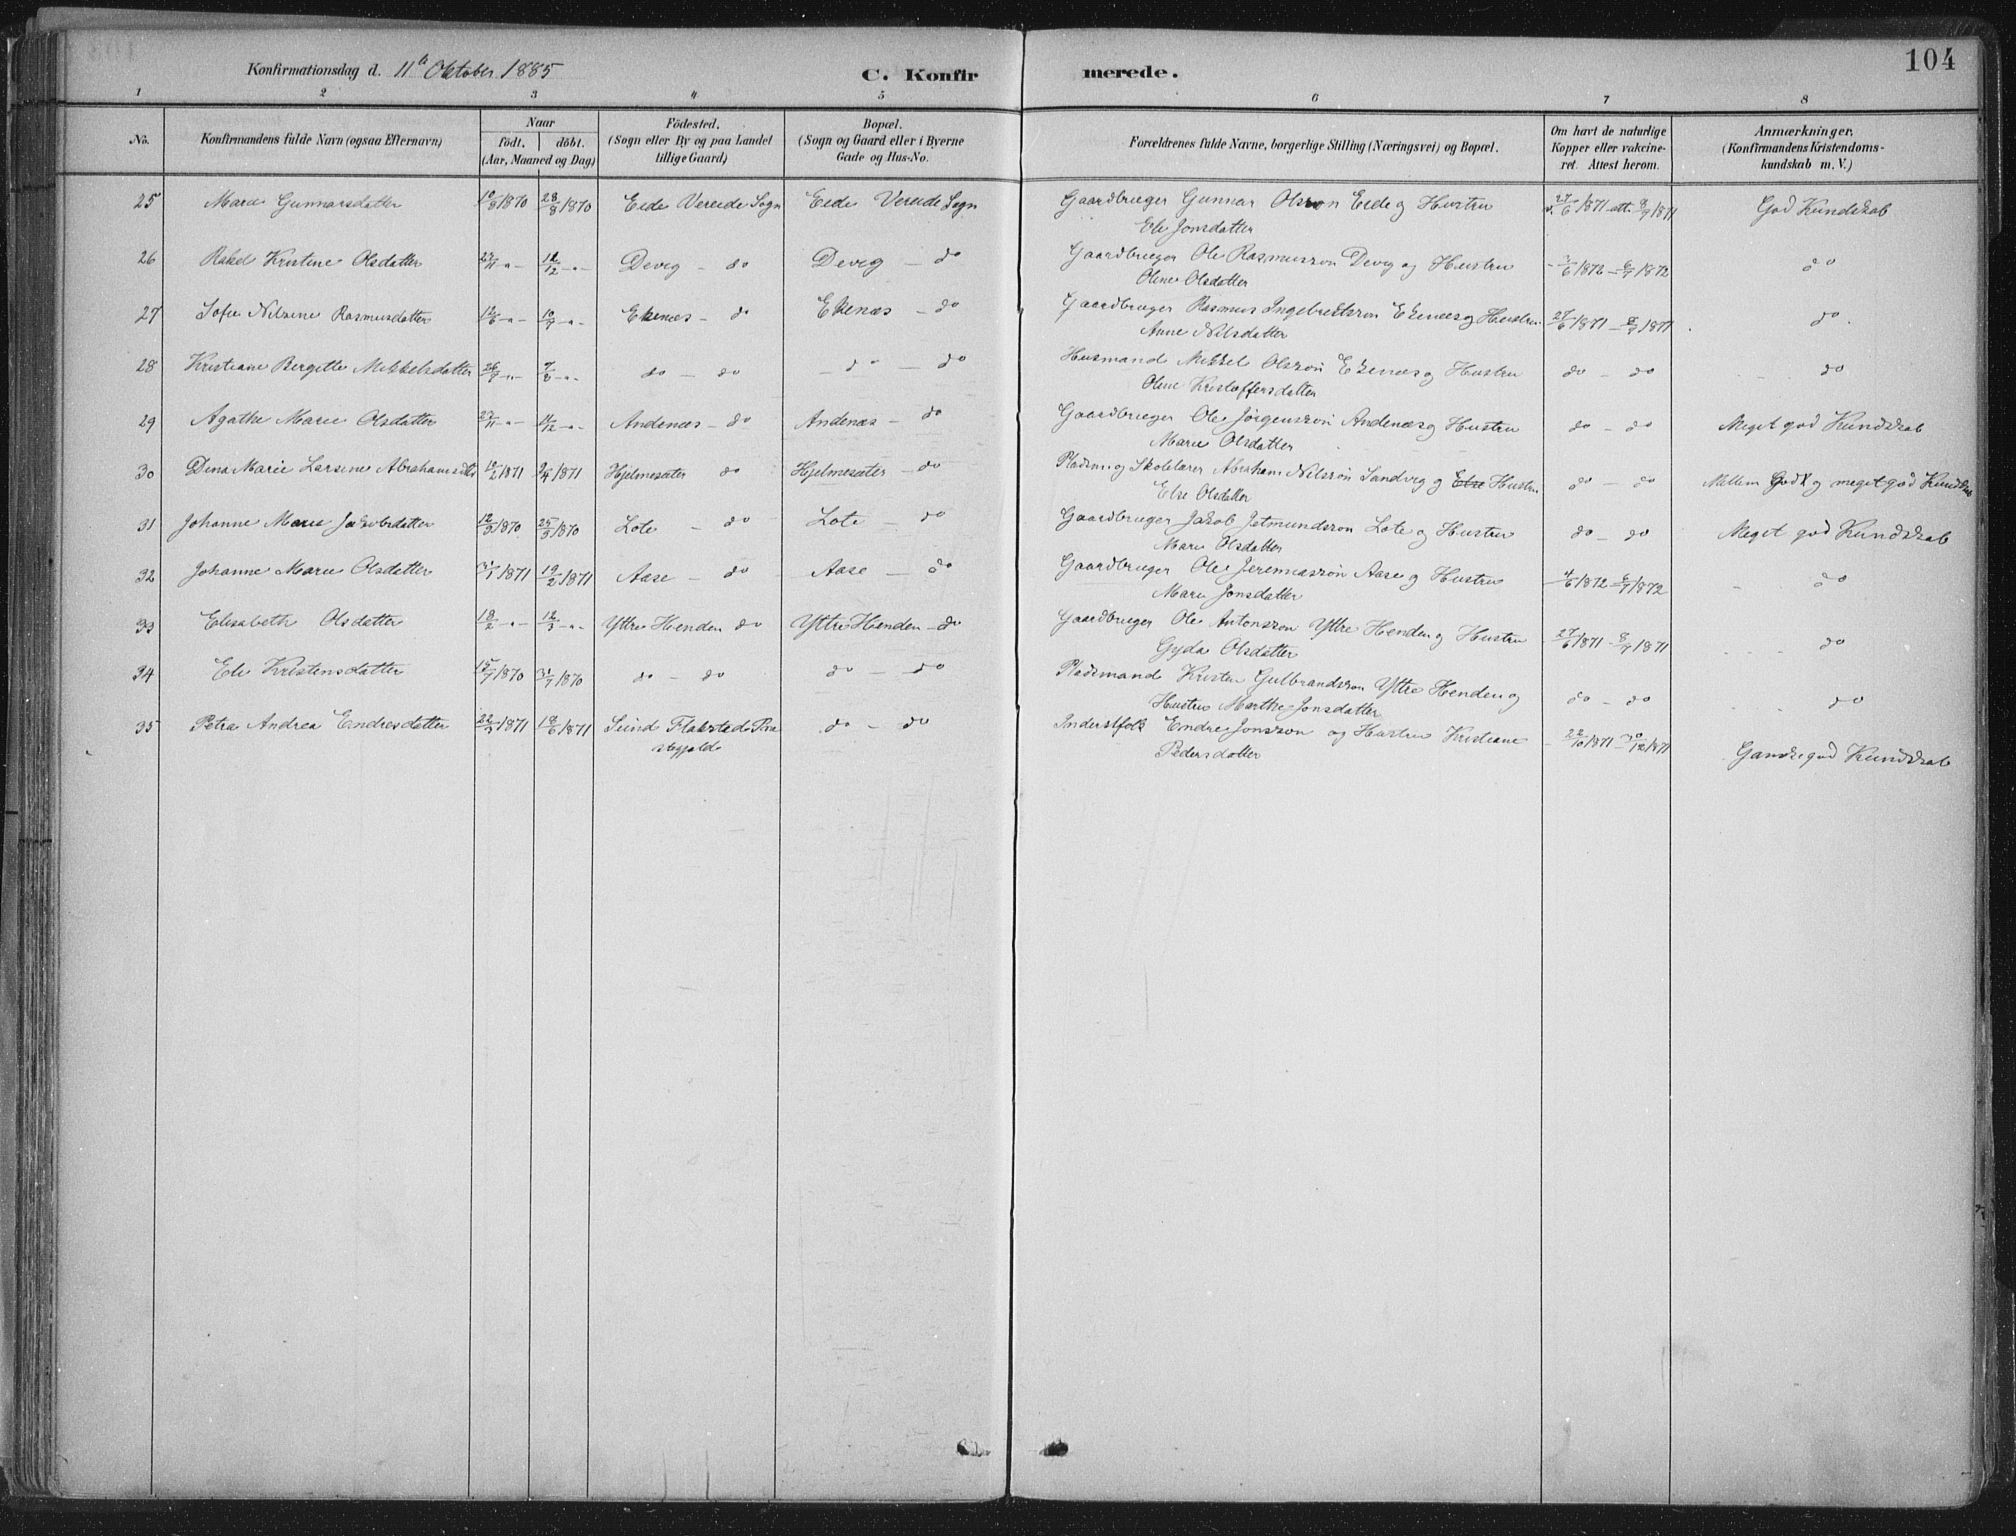 104
Konfirmationsdag d. 11te Oktober 1885 C. Konfir merede.
1 2 3 4 5 6 7 8
No. Konfirmandens fulde Navn (ogsaa Efternavn) Naar Födested. Bopæl. Forældrenes fulde Navne, borgerlige Stilling (Næringsvei) og Bopæl. Om havt de naturlige Anmærkninger.
födt. döbt. (Sogn eller By og paa Landet (Sogn og Gaard eller i Byerne Kopper eller vakcine- (Konfirmandens Kristendoms-
(Aar, Maaned og Dag) tillige Gaard) Gade og Hus-No. ret. Attest herom. kundskab m. V.)
25 Marie Gunnarsdatter /8 1870 28/8 1870 Eide Vereide Sogn Eide Vereide Sogn Gaardbruger Gunnar Olsson Eide og Hustru v. 27/6 1871 att. 8/7 1871 God Kundskab
Eli Jonsdatter
26 Rakel Kristine Olsdatter /11 -"- 12/12 -"- Devig - do Devig - do Gaardbruger Ole Rasmusson Devig og Hustru /6 1872 - 6/7 1872 do
Oline Olsdatter
27 Sofie Nilsine Rasmusdatter 12/6 -"- 10/7 -"- Ekenæs - do Ekenæs - do Gaardbruger Rasmus Ingebrektsson Ekenæs og Hustru 27/6 1871 - 8/7 1871 do
Anne Nilsdatter
28 Kristiane Bergitte Mikkelsdatter -"- -"- do - do - do - do Husmand Mikkel Olsson Ekenæs og Hustru do - do do
Oline Kristoffersdatter
29 Agathe Marie Olsdatter 27/11 -"- 11/12 -"- Andenæs - do Andenæs - do Gaardbruger Ole Jørgensson Andenæs og Hustru do - do Meget god Kundskab
Marie Olsdatter
30 Dina Marie Larsine Abrahamsdtr /2 1871 /4 1871 Hjelmesæter do Hjelmesæter - do Pladsm. og Skolelærer Abraham Nilsson Sandvig og Else Hustru do - do Mellem Godt og meget god Kundskab
Else Olsdatter
31 Johanne Marie Jakobsdatter 12/3 1870 25/3 1870 Lote - do Lote - do Gaardbruger Jakob Jetmundsson Lote og Hustru do - do Meget god Kundskab
Marie Olsdatter
32 Johanne Marie Olsdatter /1 1871 19/2 1871 Aase - do Aase - do Gaardbruger Ole Jeremiasson Aase og Hustru 4/6 1872 - 6/7 1872 do
Marie Jonsdatter
33 Elisabeth Olsdatter 18/2 -"- 12/3 -"- Yttre Henden do Yttre Henden - do Gaardbruger Ole Antonsson Yttre Henden og Hustru 27/6 1871 - 8/7 1871 do
Gyda Olsdatter
34 Eli Kristensdatter 15/7 1870 31/7 1870 do - do do - do Pladsmand Kristen Gulbrandsson Yttre Henden og do - do do
Hustru Marthe Jonsdatter
35 Petra Andrea Endresdatter 22/ 1871 18/6 1871 Sund Flakstad Præ do - do Inderstfolk Endre Jonsson og Hustru Kristiane 22/10 1871 - 30/12 1871 Ganske god Kundskab
stegjeld Pedersdatter